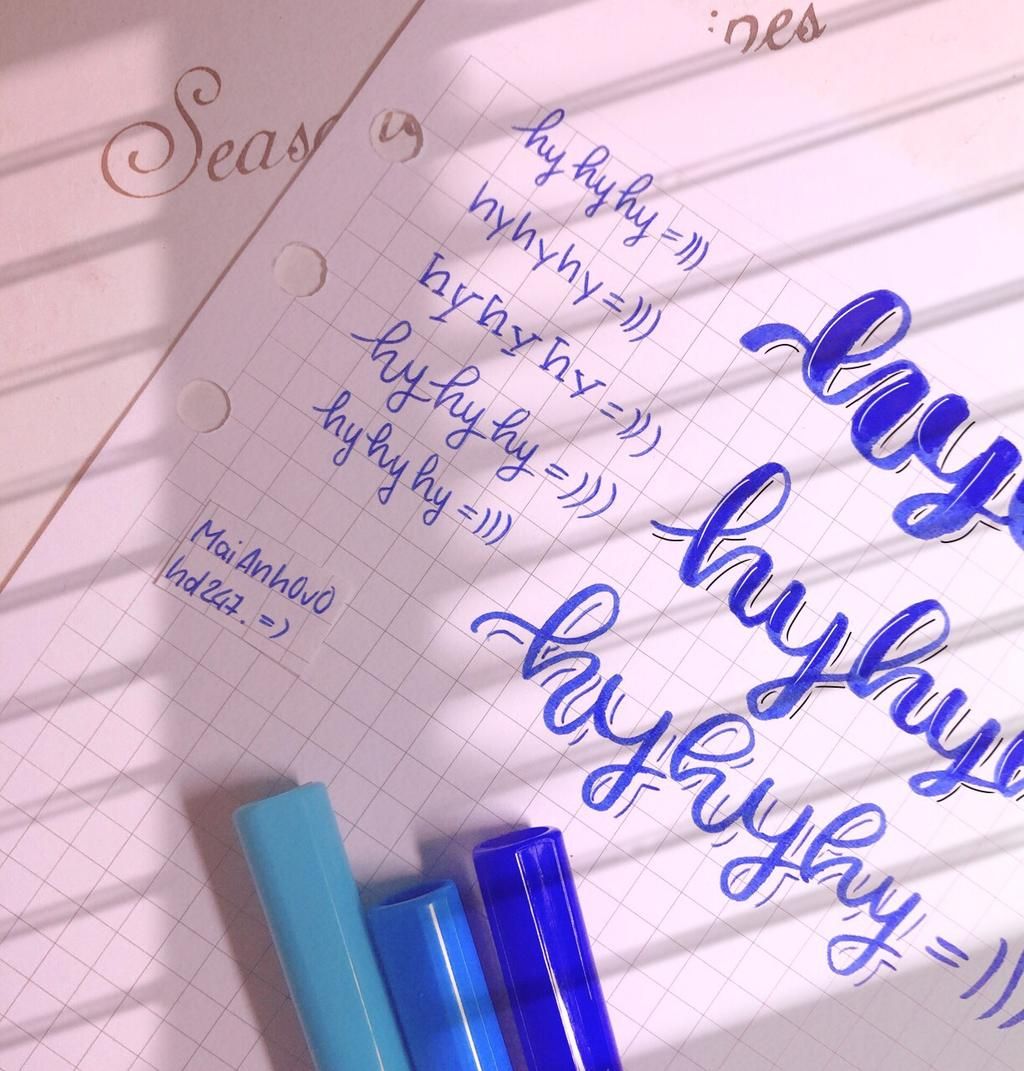 Seas
hy hy hy =)))
hyhyhy =)))
hy hy hy =)))
hyhyhy =)))
hy hy hy =)))
MaiAnhOvO
hd247. =)
hy
hyhy
hyhyhy =))